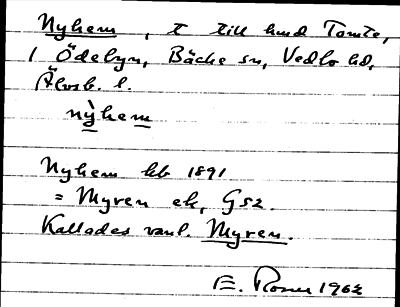 Nyhem, t till hmd Tomte,
1 Ödebyn, Bäcke sn, Vedbo hd,
Älvsb. l.
nỳhem
Nyhem kb 1891
= Myren ek, G52.
Kallades vanl. Myren.
E. Rosén 1962